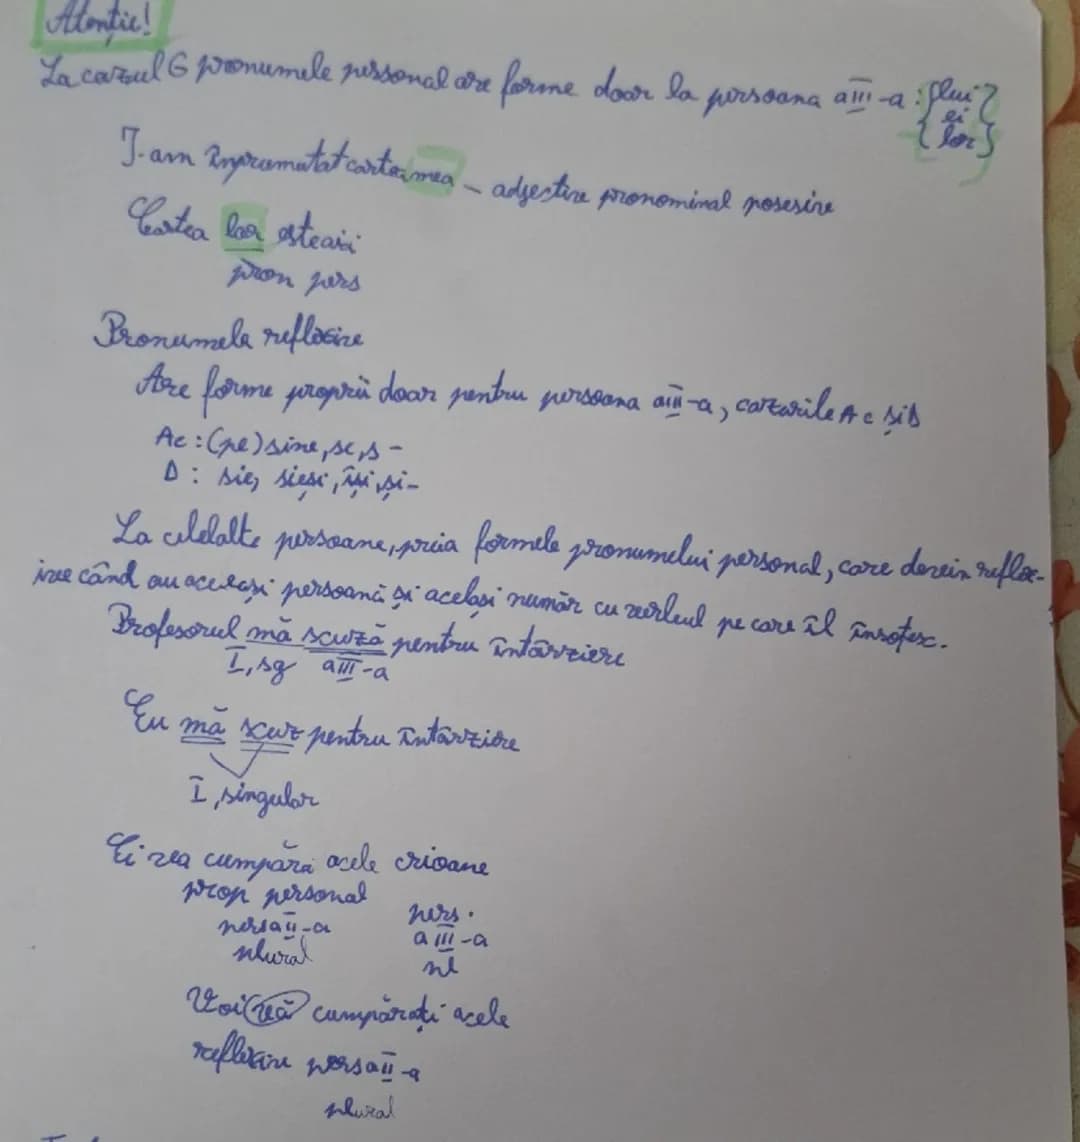 Atenție!
La cazul G pronumele personal are forme doar la persoana a III-a: {lui
ei
lor}
I-am împrumutat cartea mea - adjective pronominal posesive
Cartea lor este aici
pron pers
Pronumele reflexive
Are forme proprii doar pentru persoana a III-a, cazurile Ac și D
Ac: (pe) sine, se, s-
D: sie, sieși, își, și-
La celelalte persoane, preia formele pronumelui personal, care devin reflex-
ive când au aceeași persoană și același număr cu verbul pe care îl însoțesc.
Profesorul mă scuză pentru întârziere
I, sg a III-a
Eu mă scuz pentru întârziere
I, singular
Ei vă cumpără acele creioane
pron personal pers.
pers a II-a a III-a
plural pl
Voi vă cumpărați acele
reflexive pers a II-a
plural